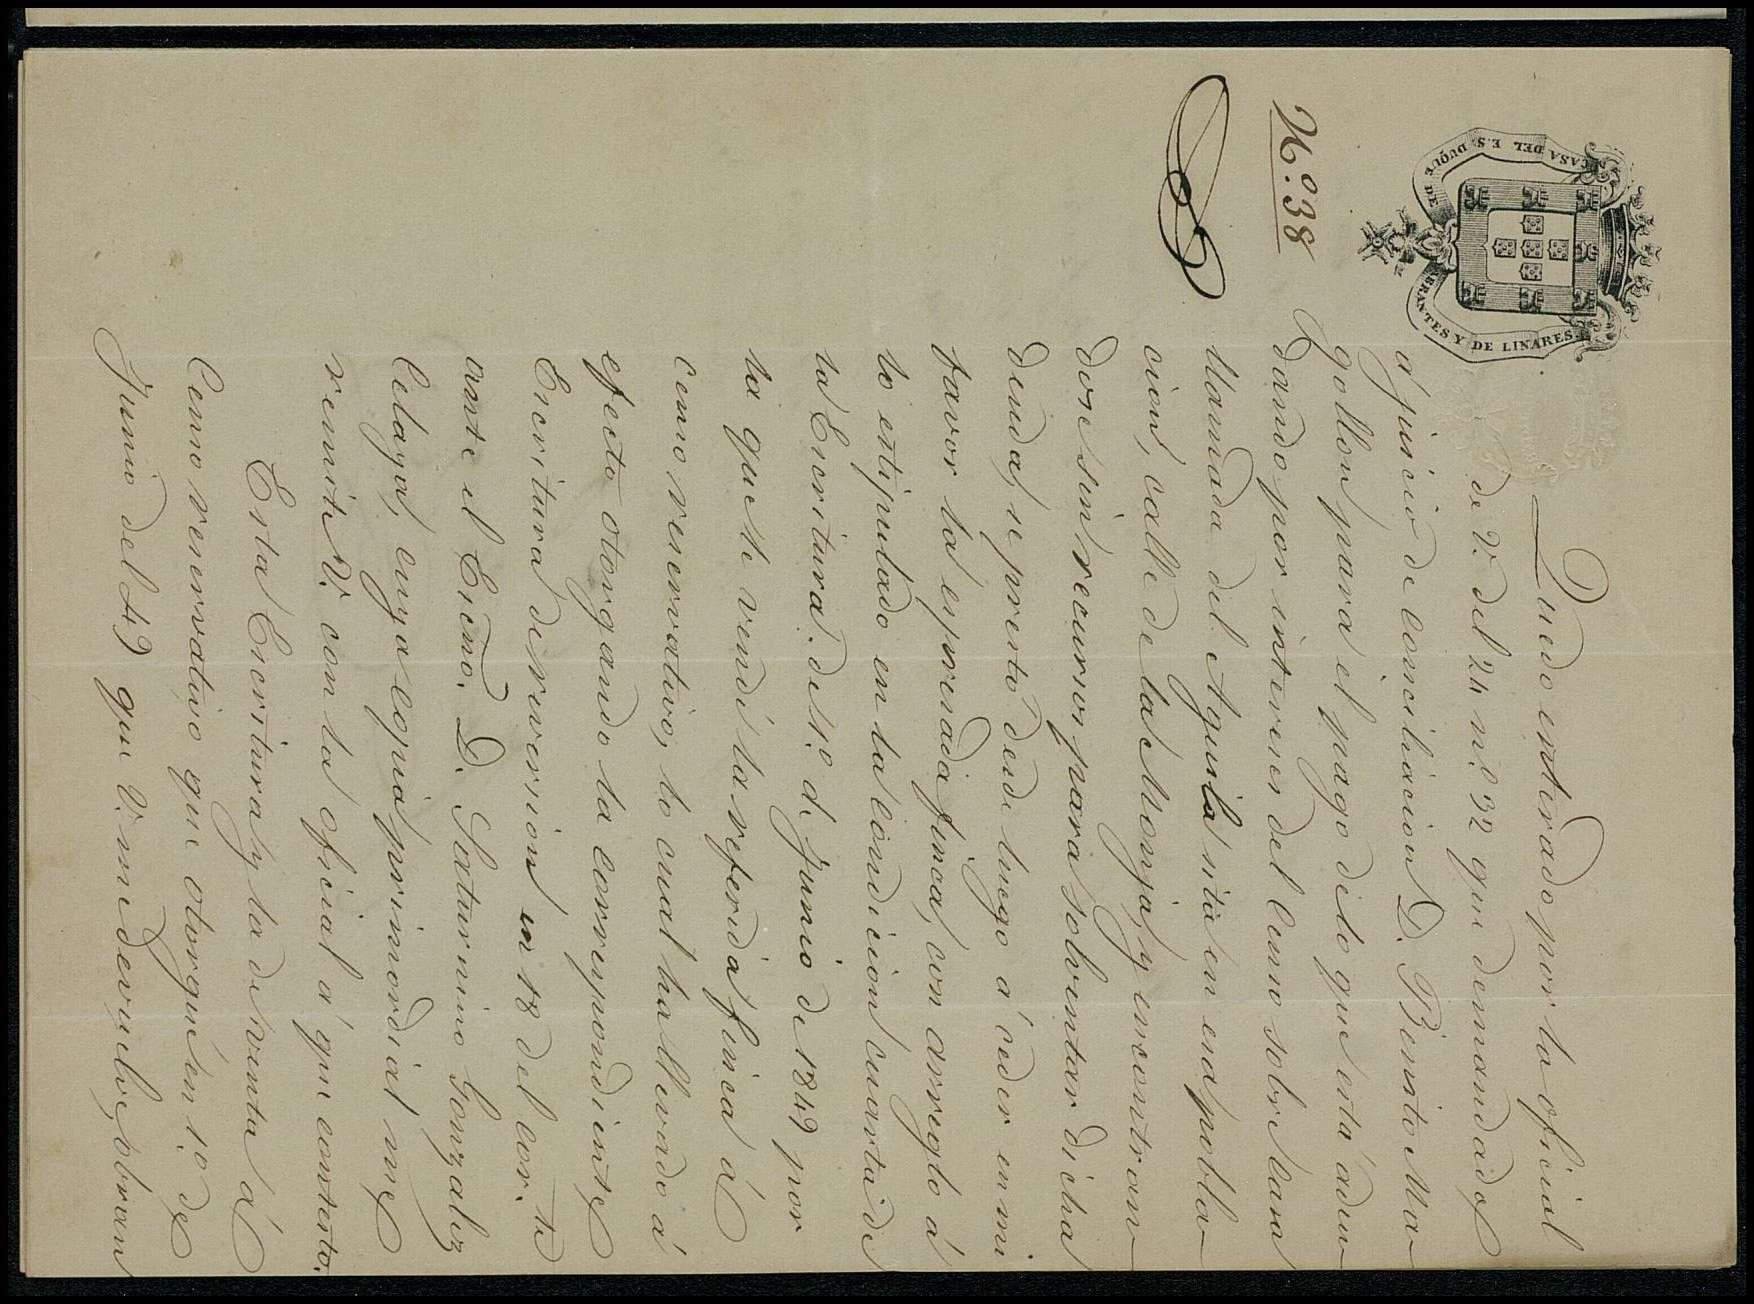 CASA DEL E.S. DUQUE DE ABRANTES Y DE LINARES.
N.º 38
Quedo enterado por la oficial
de V. del 24 n.º 32 que demandado
á juicio de conciliacion D. Benito Ma-
gollon para el pago de lo que está adeu-
dando por intereses del Censo sobre Casa
llamada del Aguila sita en esa pobla-
cion, calle de las Monjas, y encontran-
dose sin recursos para solventar dicha
deuda, se prestó desde luego á ceder en mi
favor la espresada finca, con arreglo á
lo estipulado en la condicion cuarta de
la Escritura de 1.º de Junio de 1849 por
la que le vendí la referida finca á
censo reservativo, lo cual ha llevado á
efecto otorgando la correspondiente
Escritura de reversion en 18 del cor.te
ante el Escno. D. Saturnino Gonzalez
Celaya, cuya copia primordial me
remite V. con la oficial á que contesto.
Esta Escritura y la de venta á
Censo reservativo que otorgué en 1.º de
Junio del 49 que V. me devuelve, obran